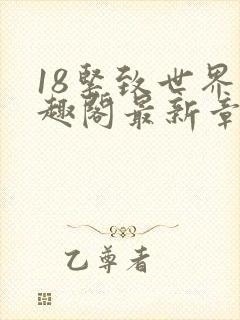 18坚致世界
趣阁最新章
乙尊者